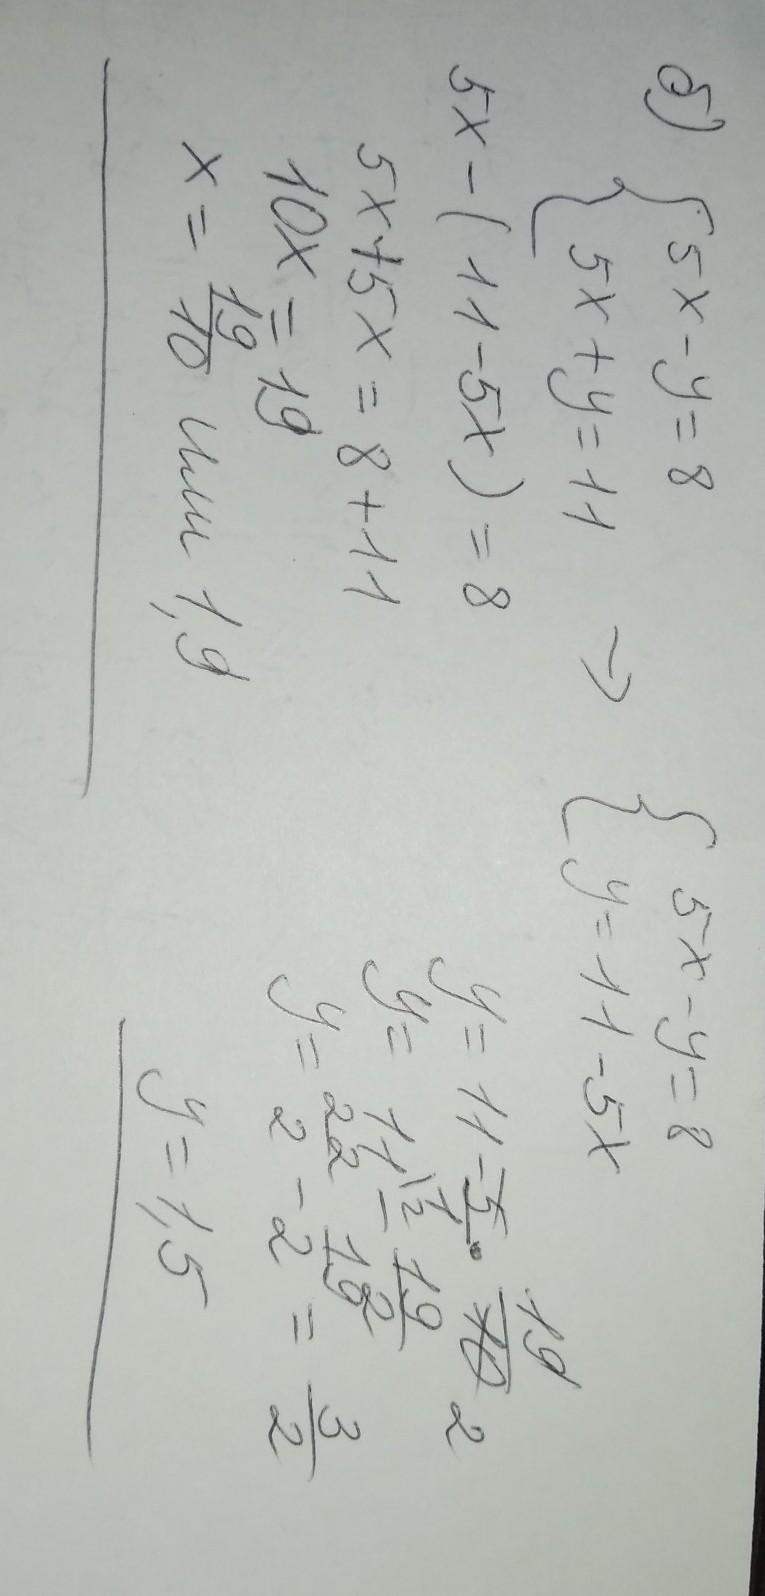 б) { 5x - y = 8
5x + y = 11 → { 5x - y = 8
y = 11 - 5x
5x - (11 - 5x) = 8
5x + 5x = 8 + 11
10x = 19
x = 19/10 или 1,9
y = 11 - 5 · 19/10 2
y = 11\2 - 19/2
y = 22/2 - 19/2 = 3/2
y = 1,5